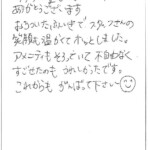 ありがとうございます
おちついたふんいきで スタッフさんの
笑顔も温かくて ホッとしました。
アメニティもそろっていて 不自由なく
すごせたのも うれしかったです。
これからも がんばって下さい